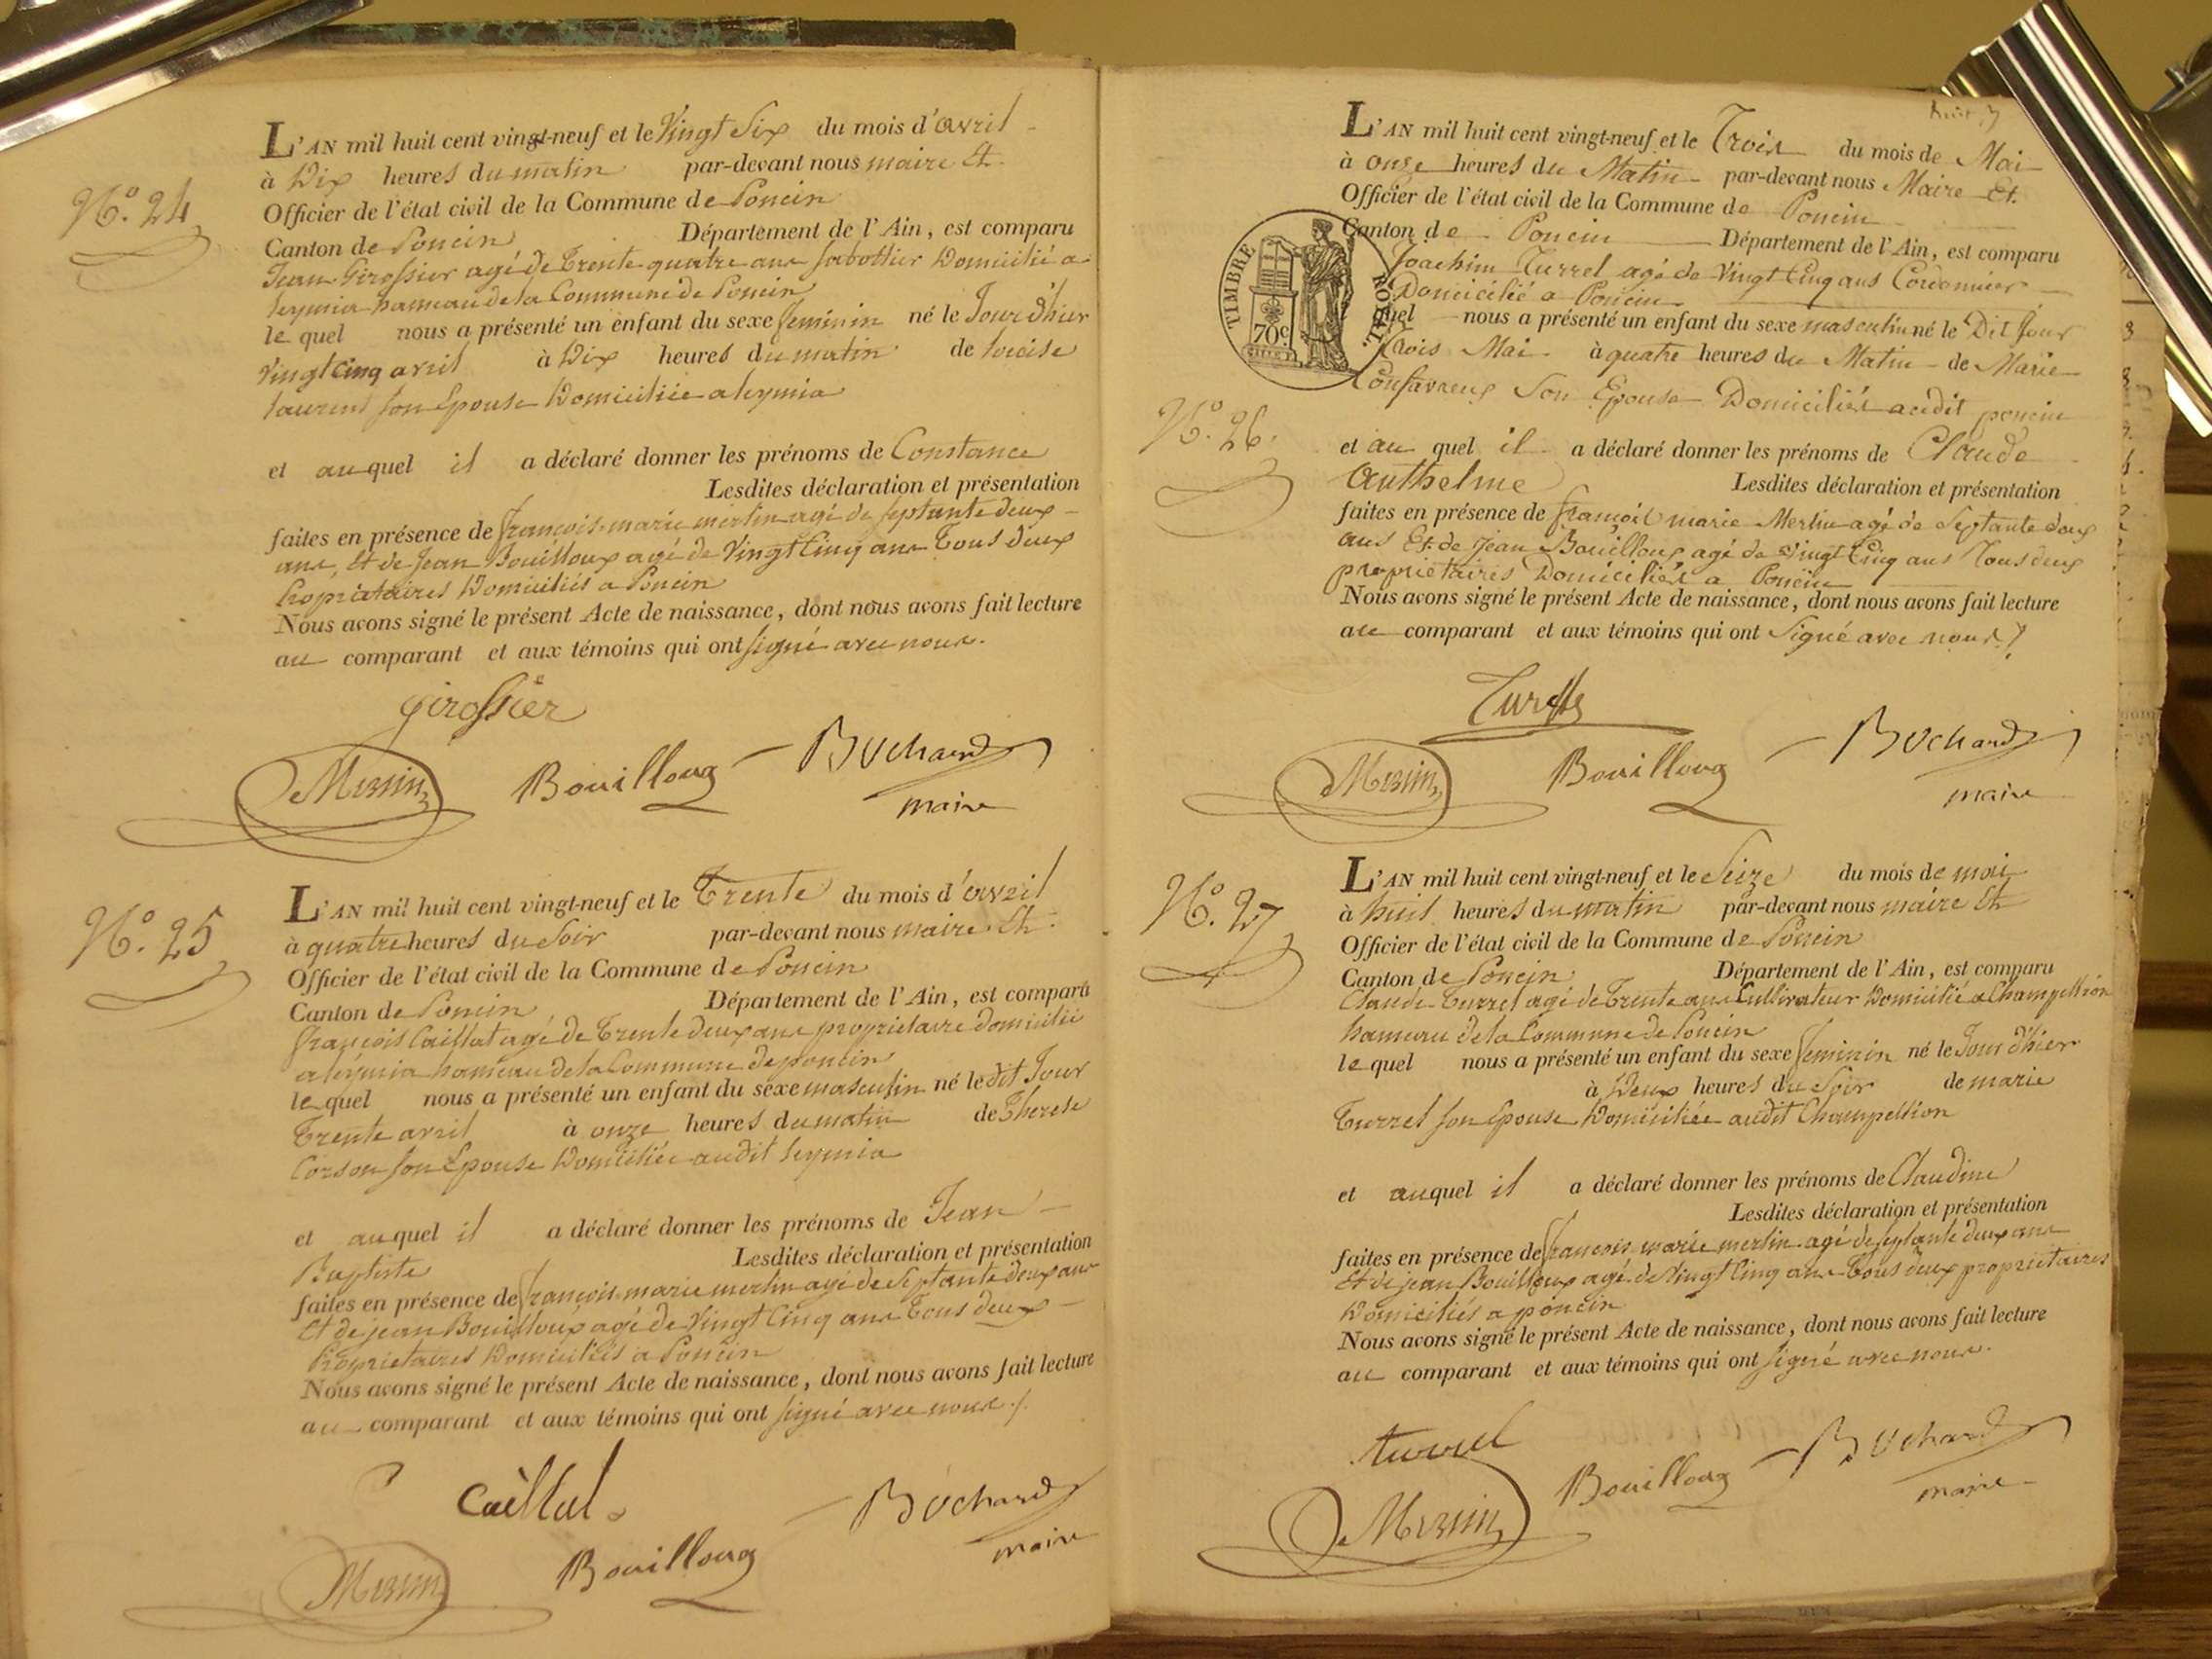 N.° 24
L'AN mil huit cent vingt-neuf et le Vingt Six du mois d'avril
à Dix heures du matin par-devant nous maire Et
Officier de l'état civil de la Commune de Poncin
Canton de Poncin Département de l'Ain, est comparu
Jean Girossier agé de Trente quatre ans sabottier Domicilié a
leymia hameau de la Commune de Poncin
le quel nous a présenté un enfant du sexe feminin né le Jour d'hier
Vingt Cinq avril à Dix heures du matin de
laurent son Epouse Domiciliée a leymia
et auquel il a déclaré donner les prénoms de Constance
Lesdites déclaration et présentation
faites en présence de françois marie merlin agé de septante deux
ans, Et de Jean Bouilloux agé de Vingt Cinq ans Tous deux
Propriétaires Domiciliés a Poncin
Nous avons signé le présent Acte de naissance, dont nous avons fait lecture
au comparant et aux témoins qui ont signé avec nous.
Girossier
Merlin Bouilloux Bochard
maire
N.° 25
L'AN mil huit cent vingt-neuf et le Trente du mois d'avril
à quatre heures du Soir par-devant nous maire Et
Officier de l'état civil de la Commune de Poncin
Canton de Poncin Département de l'Ain, est comparu
françois Caillat agé de Trente deux ans propriétaire domicilié
a leymia hameau de la Commune de poncin
le quel nous a présenté un enfant du sexe masculin né le dit Jour
Trente avril à onze heures du matin de Therese
Corson son Epouse Domiciliée audit leymia
et auquel il a déclaré donner les prénoms de Jean
Baptiste Lesdites déclaration et présentation
faites en présence de françois marie merlin agé de Septante deux ans
Et de jean Bouilloux agé de Vingt Cinq ans Tous deux
Propriétaires Domiciliés a Poncin
Nous avons signé le présent Acte de naissance, dont nous avons fait lecture
au comparant et aux témoins qui ont signé avec nous ./.
Caillat
Merlin Bouilloux Bochard
maire
L'AN mil huit cent vingt-neuf et le Trois du mois de Mai
à onze heures du Matin par-devant nous Maire Et
Officier de l'état civil de la Commune de Poncin
Canton de Poncin Département de l'Ain, est comparu
TIMBRE ROYAL.
70c
Joachim Turrel agé de Vingt Cinq ans Cordonnier
Domicilié a Poncin
quel nous a présenté un enfant du sexe masculin né le Dit Jour
Trois Mai à quatre heures du Matin de Marie
Son Epouse Domiciliés audit poncin
N.° 26.
et au quel il a déclaré donner les prénoms de Claude
Anthelme Lesdites déclaration et présentation
faites en présence de françois marie Merlin agé de Septante deux
ans Et de Jean Bouilloux agé de vingt Cinq ans Tous deux
propriétaires Domiciliés a Poncin
Nous avons signé le présent Acte de naissance, dont nous avons fait lecture
au comparant et aux témoins qui ont Signé avec nous ./.
Turrel
Merlin Bouilloux Bochard
maire
N.° 27
L'AN mil huit cent vingt-neuf et le Seize du mois de mai
à huit heures du matin par-devant nous maire Et
Officier de l'état civil de la Commune de Poncin
Canton de Poncin Département de l'Ain, est comparu
Claude Turrel agé de Trente ans Cultivateur Domicilié a Champellion
hameau de la Commune de Poncin
le quel nous a présenté un enfant du sexe feminin né le Jour d'hier
à Deux heures du Soir de marie
Turrel son Epouse Domiciliée audit Champellion
et auquel il a déclaré donner les prénoms de Claudine
Lesdites déclaration et présentation
faites en présence de françois marie merlin agé de septante deux ans
Et de jean Bouilloux agé de Vingt Cinq ans Tous deux propriétaires
Domiciliés a poncin
Nous avons signé le présent Acte de naissance, dont nous avons fait lecture
au comparant et aux témoins qui ont signé avec nous.
turrel
Merlin Bouilloux Bochard
maire